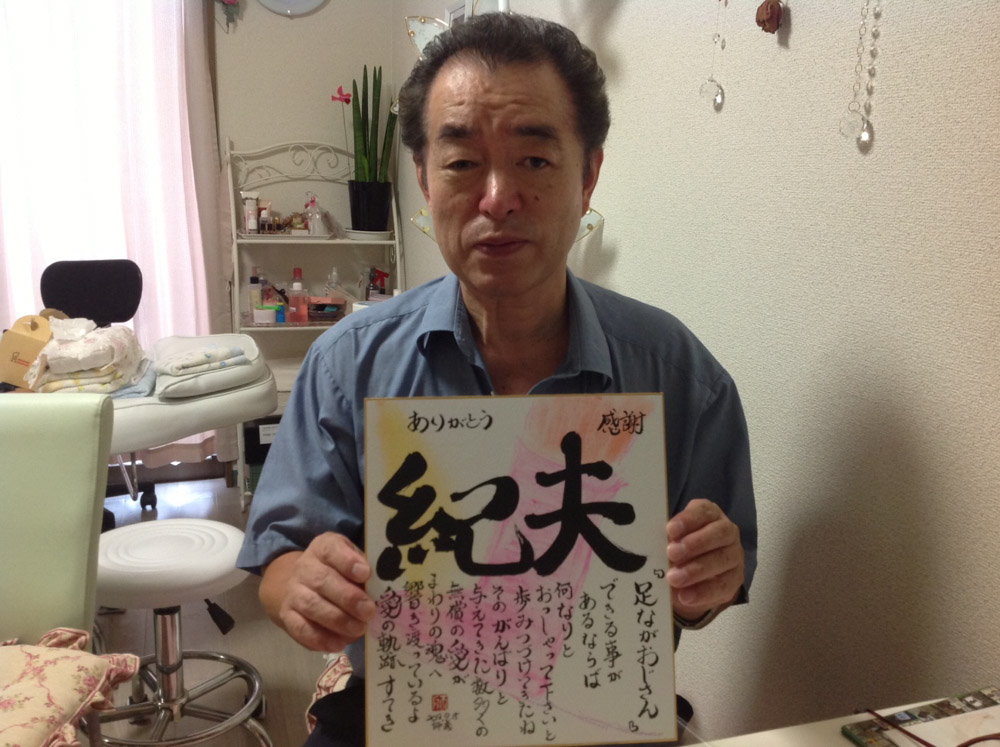 ありがとう
感謝
紀夫
『足ながおじさん』
できる事が
あるならば
何なりと
おっしゃって下さいと
歩みつづけてきたね
そのがんばりと
与えてきた数多くの
無償の愛が
まわりの魂へ
響き渡っているよ
愛の軌跡すてき